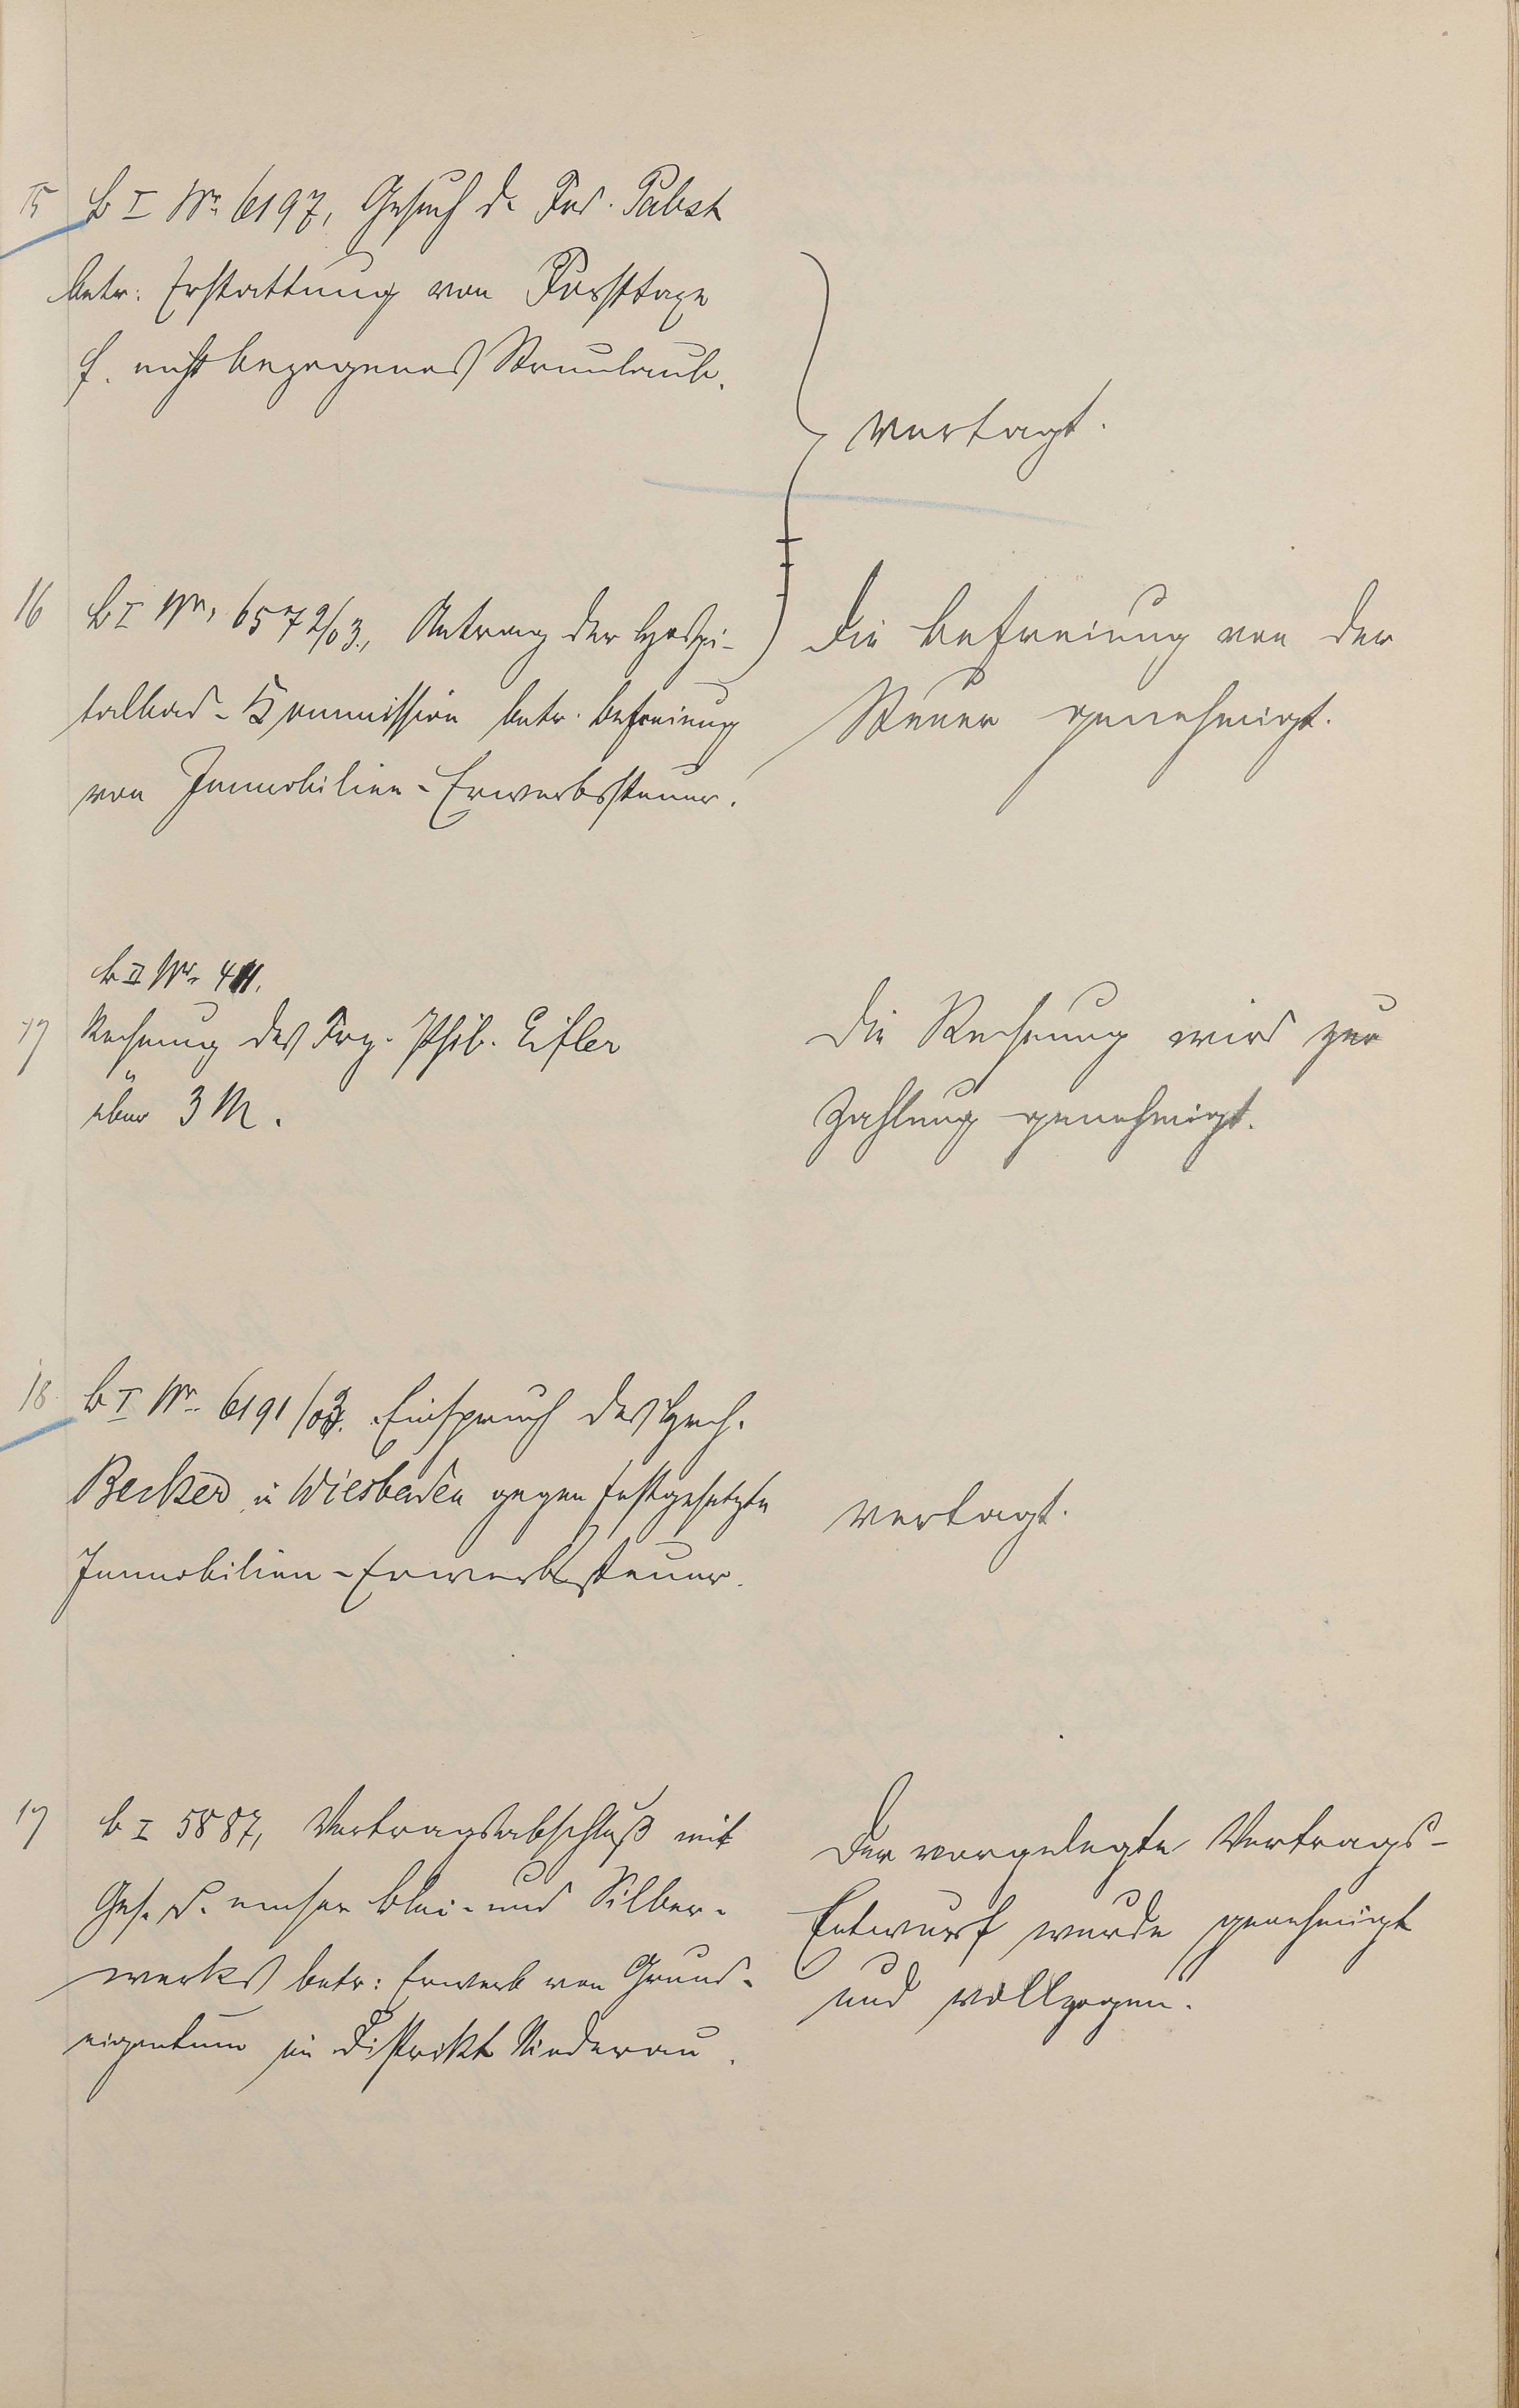 15 B I Nr. 6197, Gesuch d. Frd. Pabst
betr. Erstattung von Forsttaxe
f. nicht bezogenes Streulaub.
vertagt.
16 B I Nr. 6572/03, Antrag der Hospi-
talbad-Kommission betr. Befreiung
von Immobilien-Erwerbssteuer.
Die Befreiung von der
Steuer genehmigt.
B II Nr. 411.
17 Rechnung des Frz. Phil. Eifler
über 3 M.
Die Rechnung wird zur
Zahlung genehmigt.
18 B I Nr. 6191/03. Einspruch des Hrch.
Becker in Wiesbaden gegen festgesetzte
Immobilien-Erwerbssteuer.
vertagt.
19 B I 5887, Vertragsabschluß mit
Ges. d. emser Blei- und Silber-
werks betr: Erwerb von Grund-
eigentum im Distrikt Niederau.
Der vorgelegte Vertrags-
Entwurf wurde genehmigt
und vollzogen.